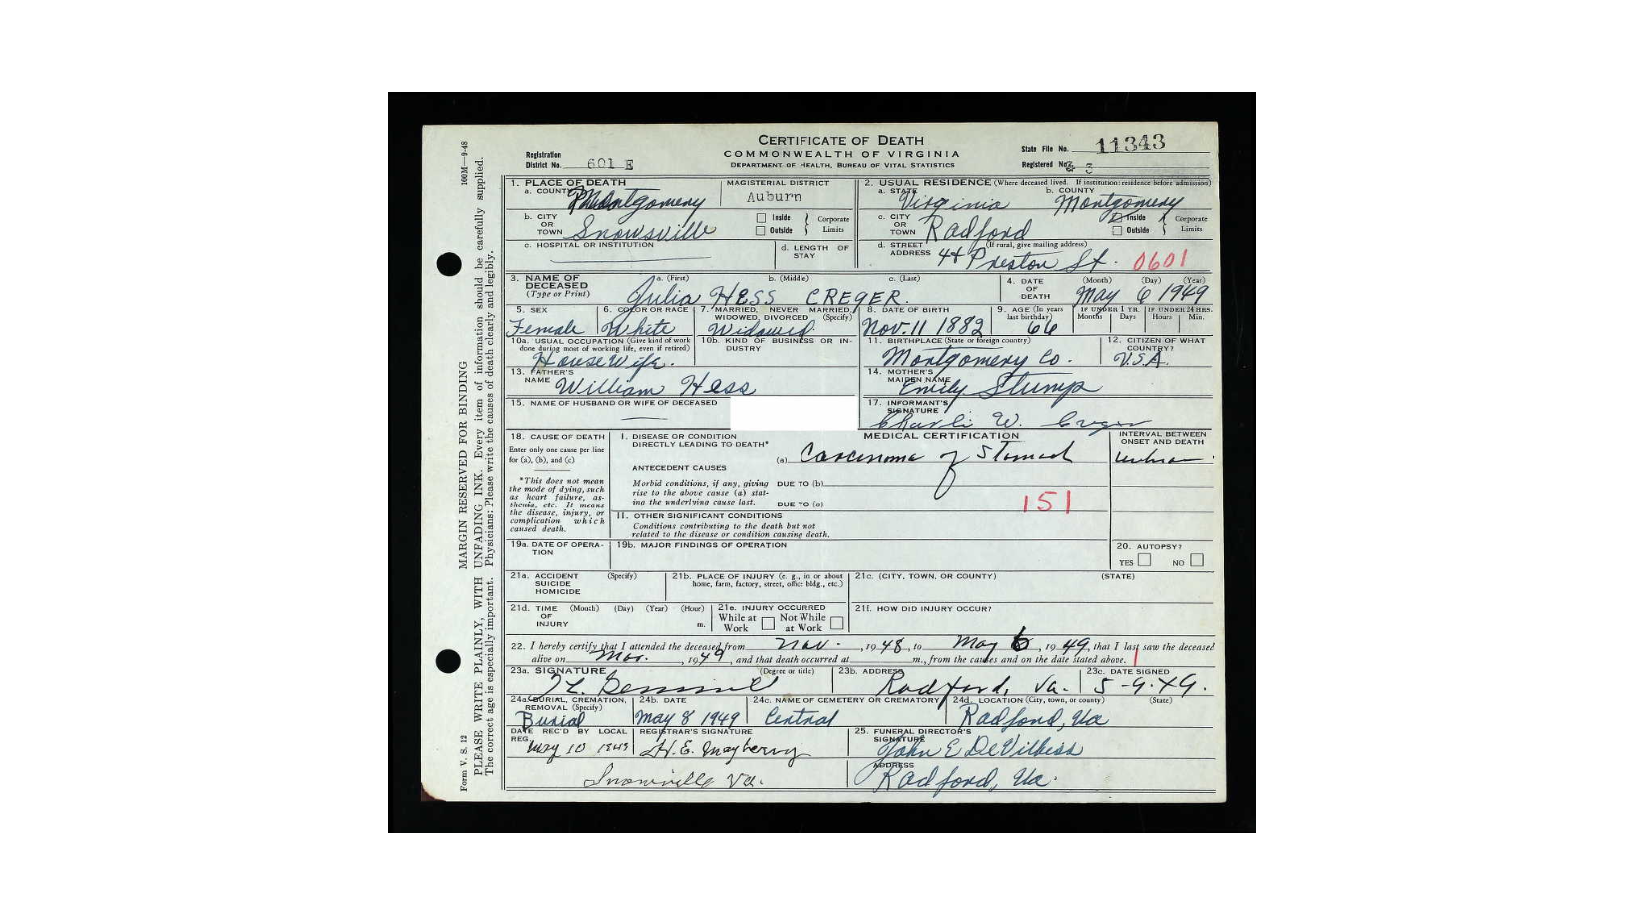 CERTIFICATE OF DEATH
COMMONWEALTH OF VIRGINIA
DEPARTMENT OF HEALTH, BUREAU OF VITAL STATISTICS
Registration District No. 601 E
State File No. 11343
Registered No. 3
1. PLACE OF DEATH
a. COUNTY Montgomery
MAGISTERIAL DISTRICT
Auburn
2. USUAL RESIDENCE (Where deceased lived. If institution: residence before admission)
a. STATE Virginia
b. COUNTY Montgomery
b. CITY OR TOWN Snowsville
Inside Outside Corporate Limits
c. CITY OR TOWN Radford
Inside Outside Corporate Limits
c. HOSPITAL OR INSTITUTION
d. LENGTH OF STAY
d. STREET ADDRESS (If rural, give mailing address) 44 Preston St. 0601
3. NAME OF DECEASED (Type or Print)
a. (First) b. (Middle) c. (Last)
Julia HESS CREGER.
4. DATE OF DEATH (Month) (Day) (Year)
May 6 1949
5. SEX
Female
6. COLOR OR RACE
White
7. MARRIED, NEVER MARRIED, WIDOWED, DIVORCED (Specify)
Widowed
8. DATE OF BIRTH
Nov. 11 1882
9. AGE (In years last birthday)
66
IF UNDER 1 YR. Months Days
IF UNDER 24 HRS. Hours Min.
10a. USUAL OCCUPATION (Give kind of work done during most of working life, even if retired)
HouseWife.
10b. KIND OF BUSINESS OR INDUSTRY
11. BIRTHPLACE (State or foreign country)
Montgomery Co.
12. CITIZEN OF WHAT COUNTRY?
U.S.A.
13. FATHER'S NAME William Hess
14. MOTHER'S MAIDEN NAME Emily Stump
15. NAME OF HUSBAND OR WIFE OF DECEASED
17. INFORMANT'S SIGNATURE
Charlie W. Creger
18. CAUSE OF DEATH
Enter only one cause per line for (a), (b), and (c)
*This does not mean the mode of dying, such as heart failure, asthenia, etc. It means the disease, injury, or complication which caused death.
MEDICAL CERTIFICATION
INTERVAL BETWEEN ONSET AND DEATH
I. DISEASE OR CONDITION DIRECTLY LEADING TO DEATH*
(a) Carcinoma of Stomach
ANTECEDENT CAUSES
Morbid conditions, if any, giving rise to the above cause (a) stating the underlying cause last.
DUE TO (b)
DUE TO (c)
151
II. OTHER SIGNIFICANT CONDITIONS
Conditions contributing to the death but not related to the disease or condition causing death.
19a. DATE OF OPERATION
19b. MAJOR FINDINGS OF OPERATION
20. AUTOPSY?
YES NO
21a. ACCIDENT SUICIDE HOMICIDE (Specify)
21b. PLACE OF INJURY (e. g., in or about home, farm, factory, street, office bldg., etc.)
21c. (CITY, TOWN, OR COUNTY) (STATE)
21d. TIME OF INJURY (Month) (Day) (Year) (Hour) m.
21e. INJURY OCCURRED
While at Work Not While at Work
21f. HOW DID INJURY OCCUR?
22. I hereby certify that I attended the deceased from Nov. , 1948, to May 6, 1949, that I last saw the deceased
alive on Mar. , 1949, and that death occurred at m., from the causes and on the date stated above.
23a. SIGNATURE (Degree or title)
23b. ADDRESS
Radford, Va.
23c. DATE SIGNED
5-9-49.
24a. BURIAL, CREMATION, REMOVAL (Specify)
Burial
24b. DATE
May 8 1949
24c. NAME OF CEMETERY OR CREMATORY
Central
24d. LOCATION (City, town, or county) (State)
Radford, Va
DATE REC'D BY LOCAL REG.
May 10 1949
REGISTRAR'S SIGNATURE
H. E. Mayberry
Snowville Va.
25. FUNERAL DIRECTOR'S SIGNATURE
John E DeVilbiss
ADDRESS
Radford, Va.
Form V. S. 12
100M—9-48
MARGIN RESERVED FOR BINDING
PLEASE WRITE PLAINLY, WITH UNFADING INK. Every item of information should be carefully supplied.
The correct age is especially important. Physicians: Please write the causes of death clearly and legibly.